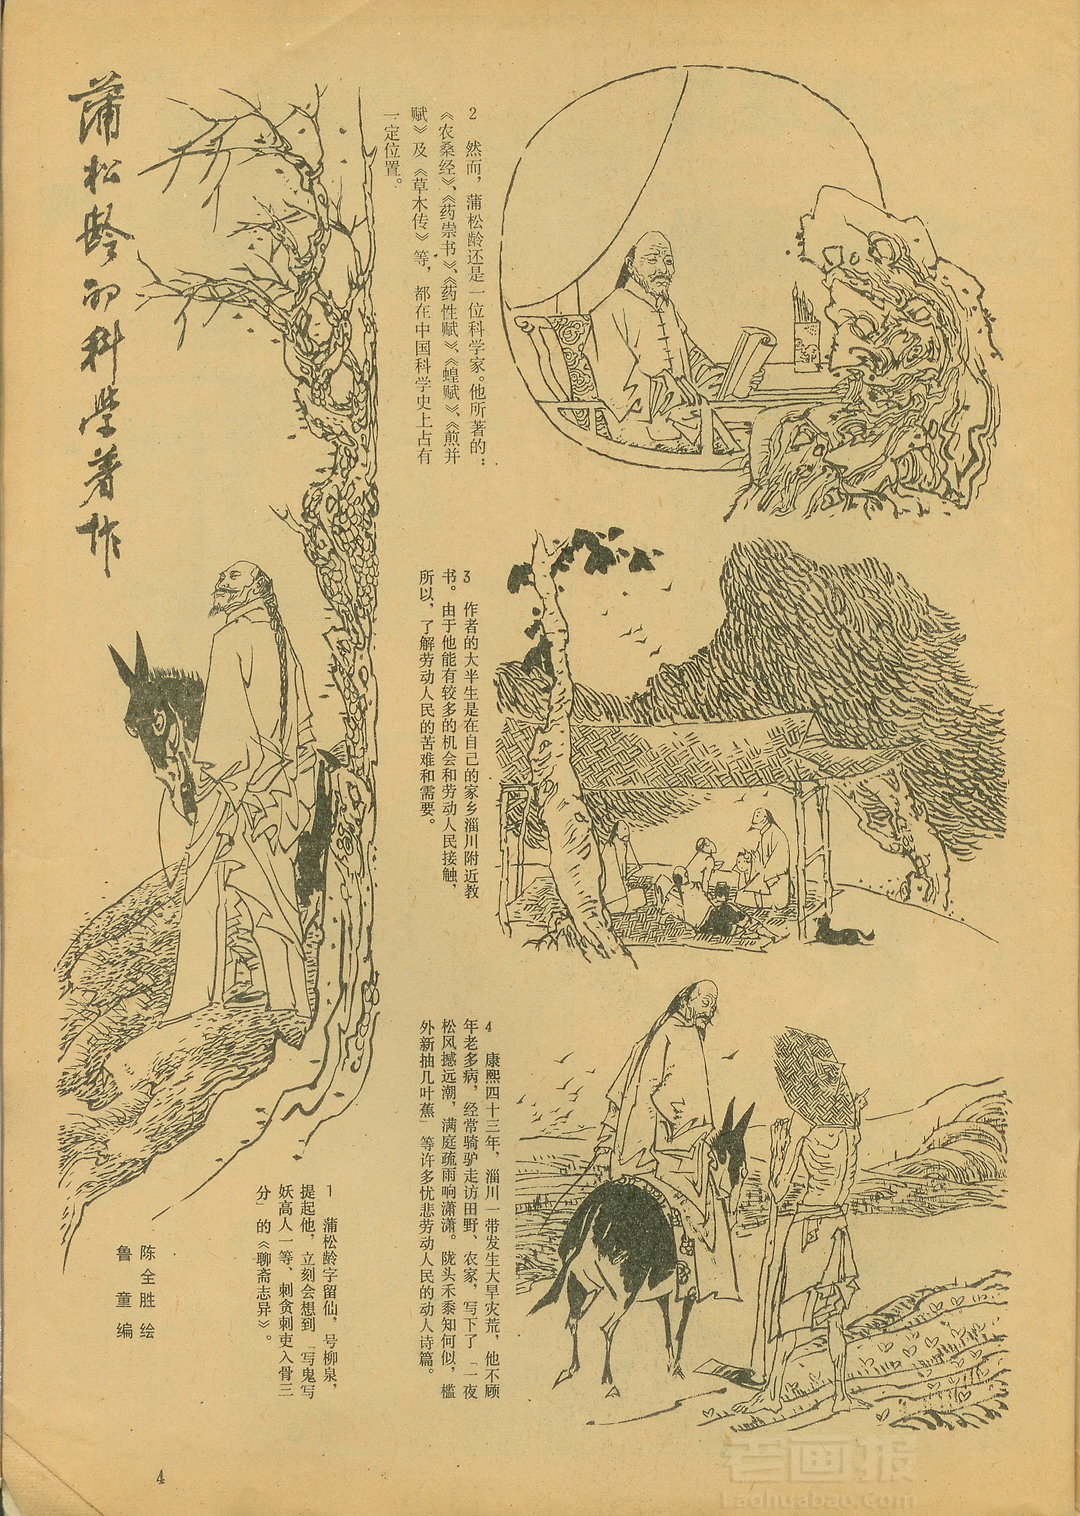 蒲松龄的科学著作
陈全胜 绘
鲁童 编
1 蒲松龄字留仙，号柳泉，
提起他，立刻会想到「写鬼写
妖高人一等、刺贪刺吏入骨三
分」的《聊斋志异》。
2 然而，蒲松龄还是一位科学家。他所著的：
《农桑经》、《药祟书》、《药性赋》、《蝗赋》、《煎并
赋》及《草木传》等，都在中国科学史上占有
一定位置。
3 作者的大半生是在自己的家乡淄川附近教
书。由于他能有较多的机会和劳动人民接触，
所以，了解劳动人民的苦难和需要。
4 康熙四十三年，淄川一带发生大旱灾荒，他不顾
年老多病，经常骑驴走访田野、农家，写下了「一夜
松风撼远潮，满庭疏雨响潇潇。陇头禾黍知何似，槛
外新抽几叶蕉」等许多忧悲劳动人民的动人诗篇。
4
老画报
Laohuabao.com